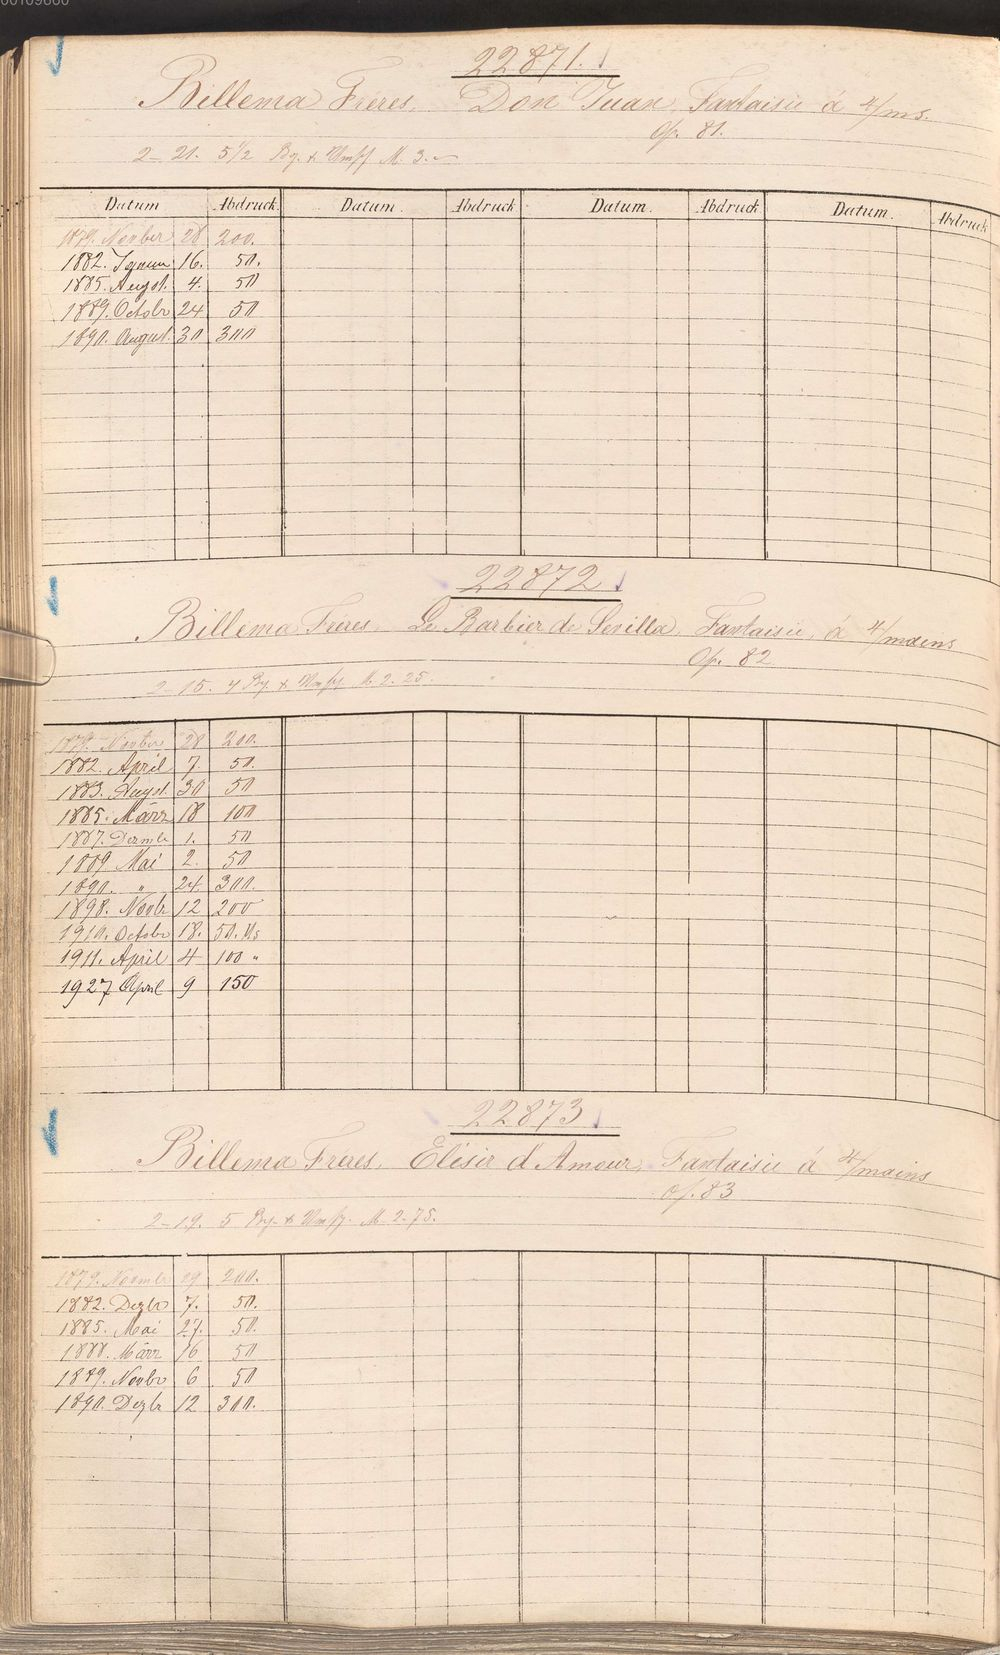 22871.
Billema Freres. Don Juan, Fantaisie à 4/ms.
Op. 81.
2-21. 5 1/2 Bg. & Umschl. M. 3.-
Datum Abdruck. Datum. Abdruck Datum. Abdruck Datum. Abdruck
1879. Novber 28 200.
1882. Januar 16. 50.
1885. August. 4. 50
1889. Octobr 24 50
1890. August. 30 300
22872.
Billema Freres. Le Barbier de Sevilla, Fantaisie, à 4/mains
Op. 82
2-15. 4 Bg. & Umschl. M. 2.25.
1879. Novber 28 200.
1882. April 7. 50.
1883. August. 30 50
1885. März 18 100
1887. Dezmb 1. 50
1889 Mai 2. 50
1890. " 24. 300.
1898. Novb. 12 200
1910. Octobr 18. 50.
1911. April 4 100 "
1927 April 9 150
22873.
Billema Freres. Elisir d'Amour, Fantaisie à 4/mains
op. 83
2-19. 5 Bg. & Umschl. M. 2.75.
1879. Novmb 29 200.
1882. Dezbr 7. 50.
1885. Mai 27. 50.
1888. März 16 50
1889. Novbr 6 50
1890. Dezbr 12 300.